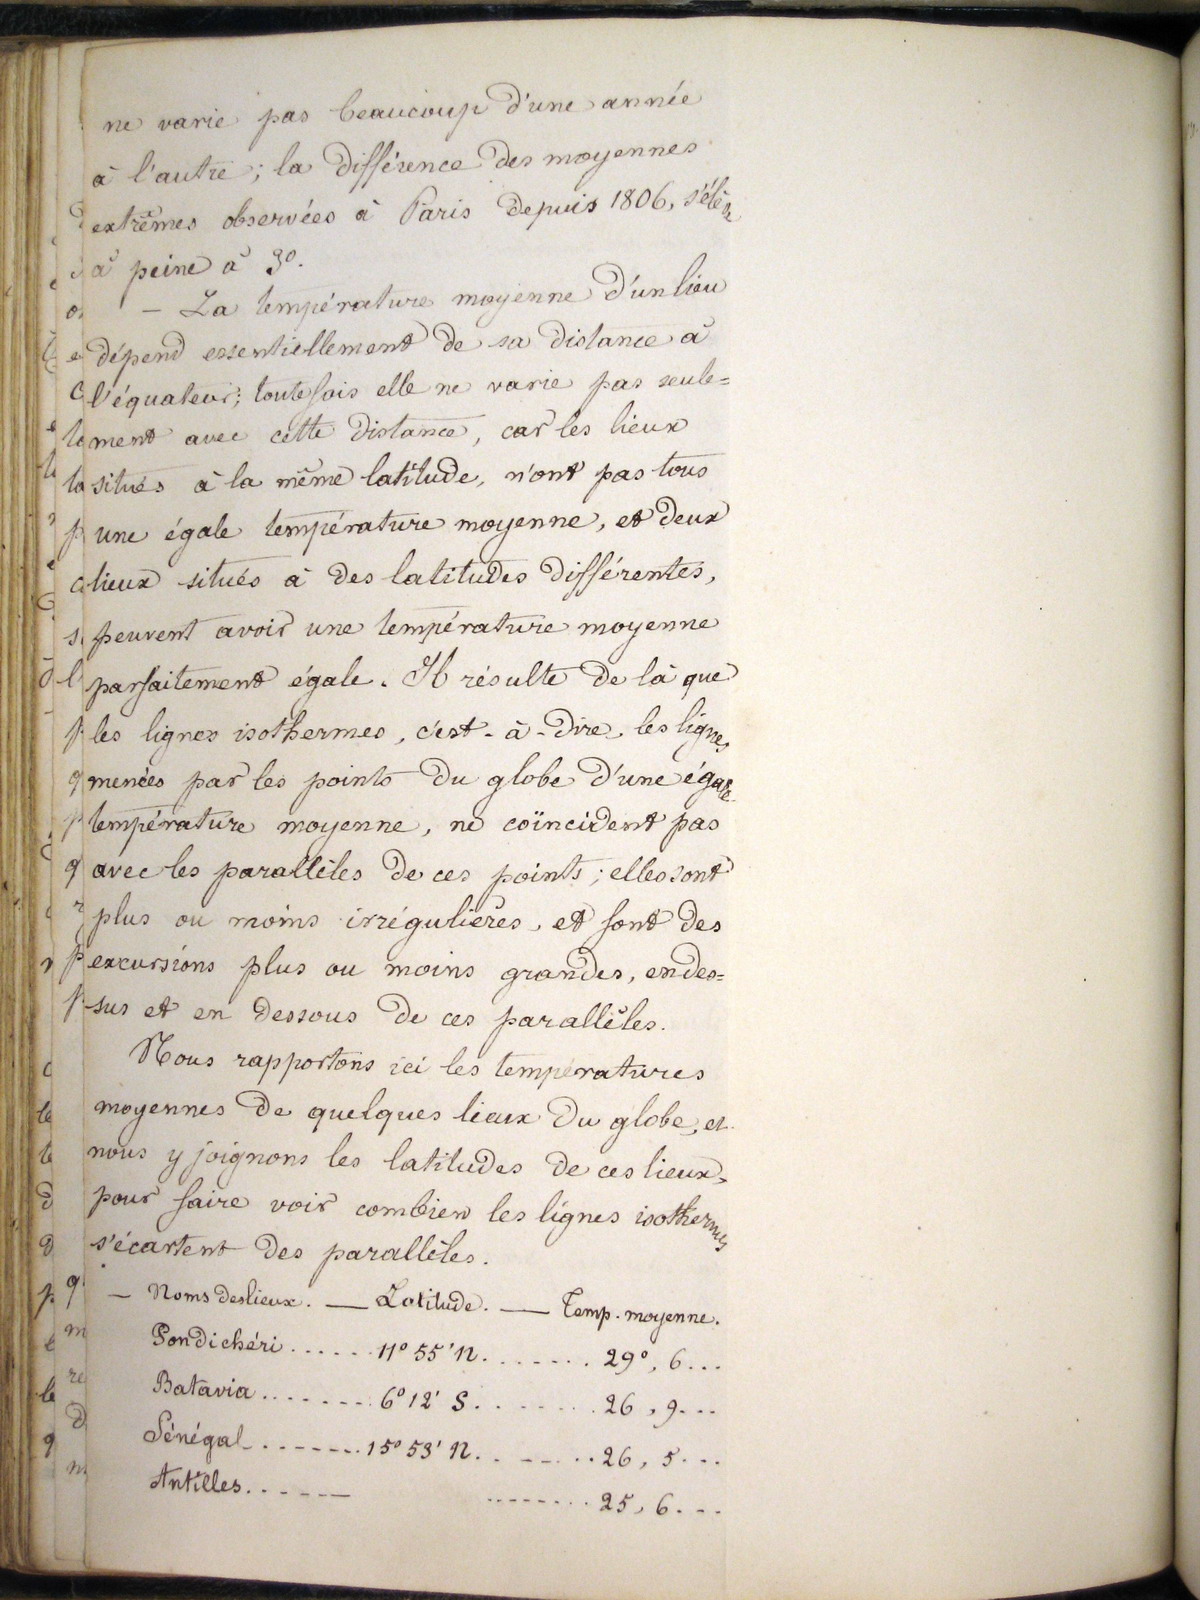 ne varie pas beaucoup d'une année
à l'autre; la différence des moyennes
extrêmes observées à Paris depuis 1806, s'élève
à peine à 3°.
— La température moyenne d'un lieu
dépend essentiellement de sa distance à
l'équateur; toutefois elle ne varie pas seule=
ment avec cette distance, car les lieux
situés à la même latitude, n'ont pas tous
une égale température moyenne, et deux
lieux situés à des latitudes différentes,
peuvent avoir une température moyenne
parfaitement égale. Il résulte de là que
les lignes isothermes, c'est-à-dire, les lignes
menées par les points du globe d'une égale
température moyenne, ne coïncident pas
avec les parallèles de ces points; elles sont
plus ou moins irrégulières, et font des
excursions plus ou moins grandes, en des=
sus et en dessous de ces parallèles.
Nous rapportons ici les températures
moyennes de quelques lieux du globe, et
nous y joignons les latitudes de ces lieux,
pour faire voir combien les lignes isothermes
s'écartent des parallèles.
— Noms des lieux. — Latitude. — Temp. moyenne.
Pondichéri ...... 11° 55' N. ....... 29°, 6...
Batavia ....... 6° 12' S. ....... 26, 9...
Sénégal ....... 15° 53' N. ....... 26, 5...
Antilles. ..... ........ 25, 6...